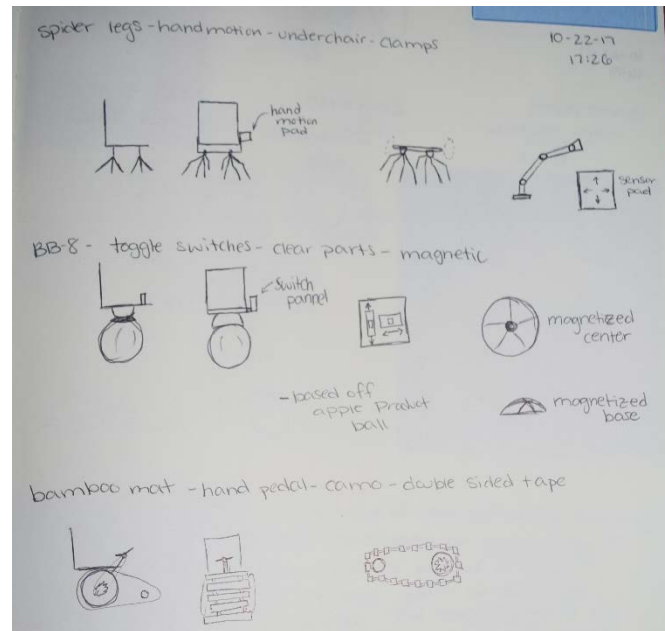 spider legs - hand motion - underchair - clamps
10-22-17
17:26
hand
motion
pad
sensor
pad
BB-8 - toggle switches - clear parts - magnetic
switch
pannel
magnetized
center
- based off
apple product
ball
magnetized
base
bamboo mat - hand pedal - camo - double sided tape